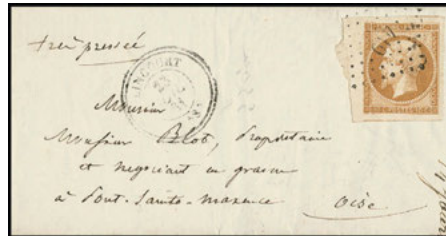 très pressée
Monsieur
Monsieur Blot, Propriétaire
et négociant en grains
à Pont-Sainte-Maxence
Oise